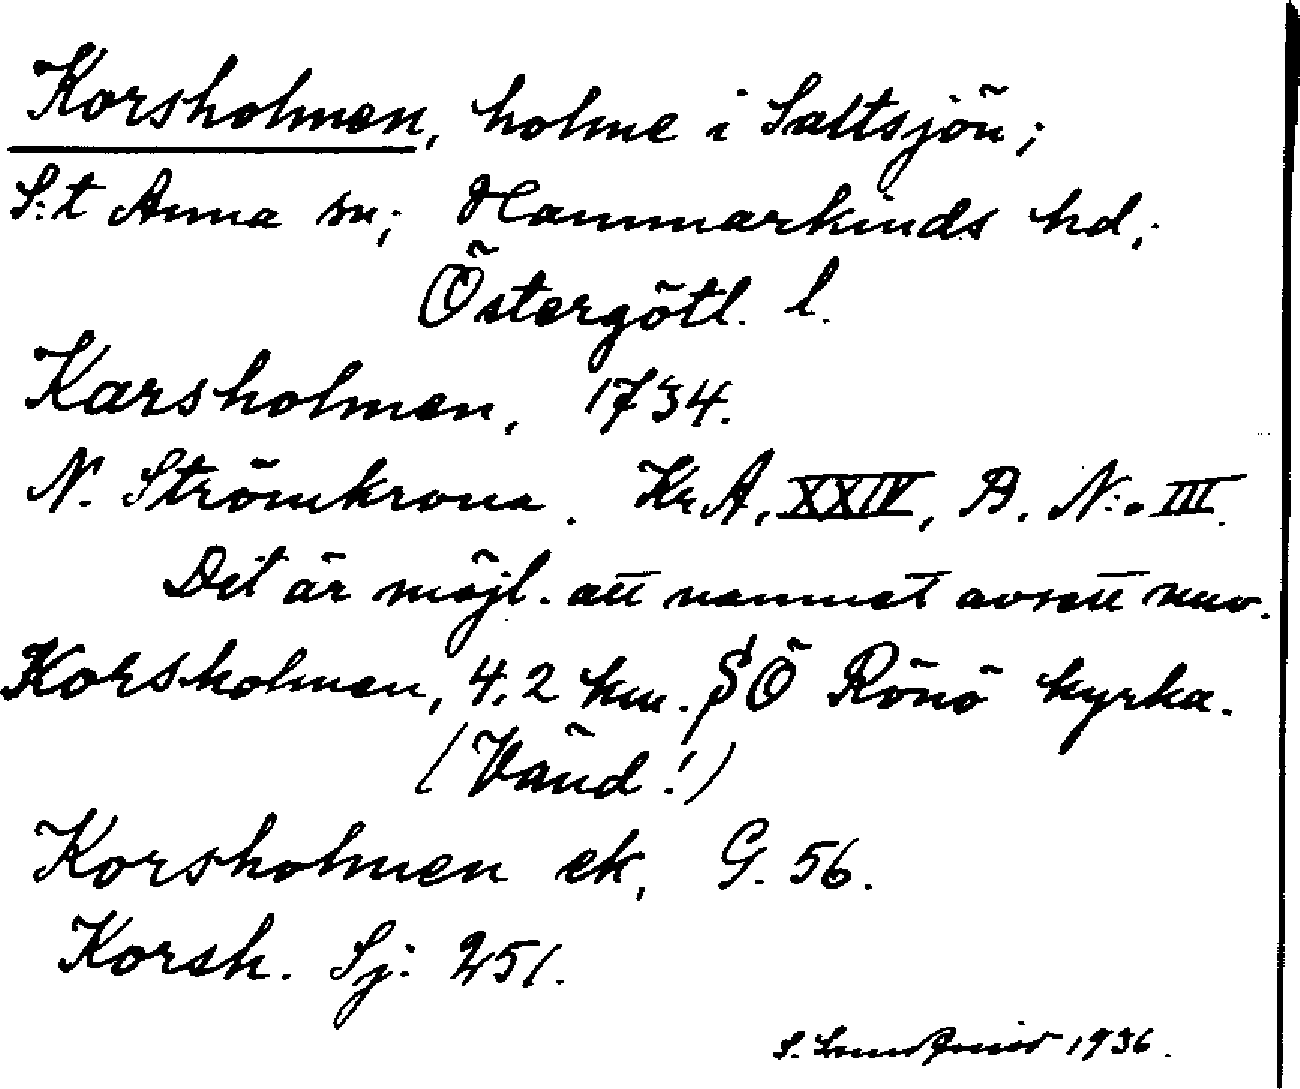 Korsholmen, holme i Saltsjön;
S:t Anna sn; Hammarkinds hd;
Östergötl. l.
Karsholmen, 1734.
N. Strömkrona. Kr.A. XXIV, B. N:o III.
Det är möjl. att namnet avsett nuv.
Korsholmen, 4,2 km. SÖ Rönö kyrka.
(Vänd!)
Korsholmen ek, G. 56.
Korsh. Sj: 251.
S. 1936.